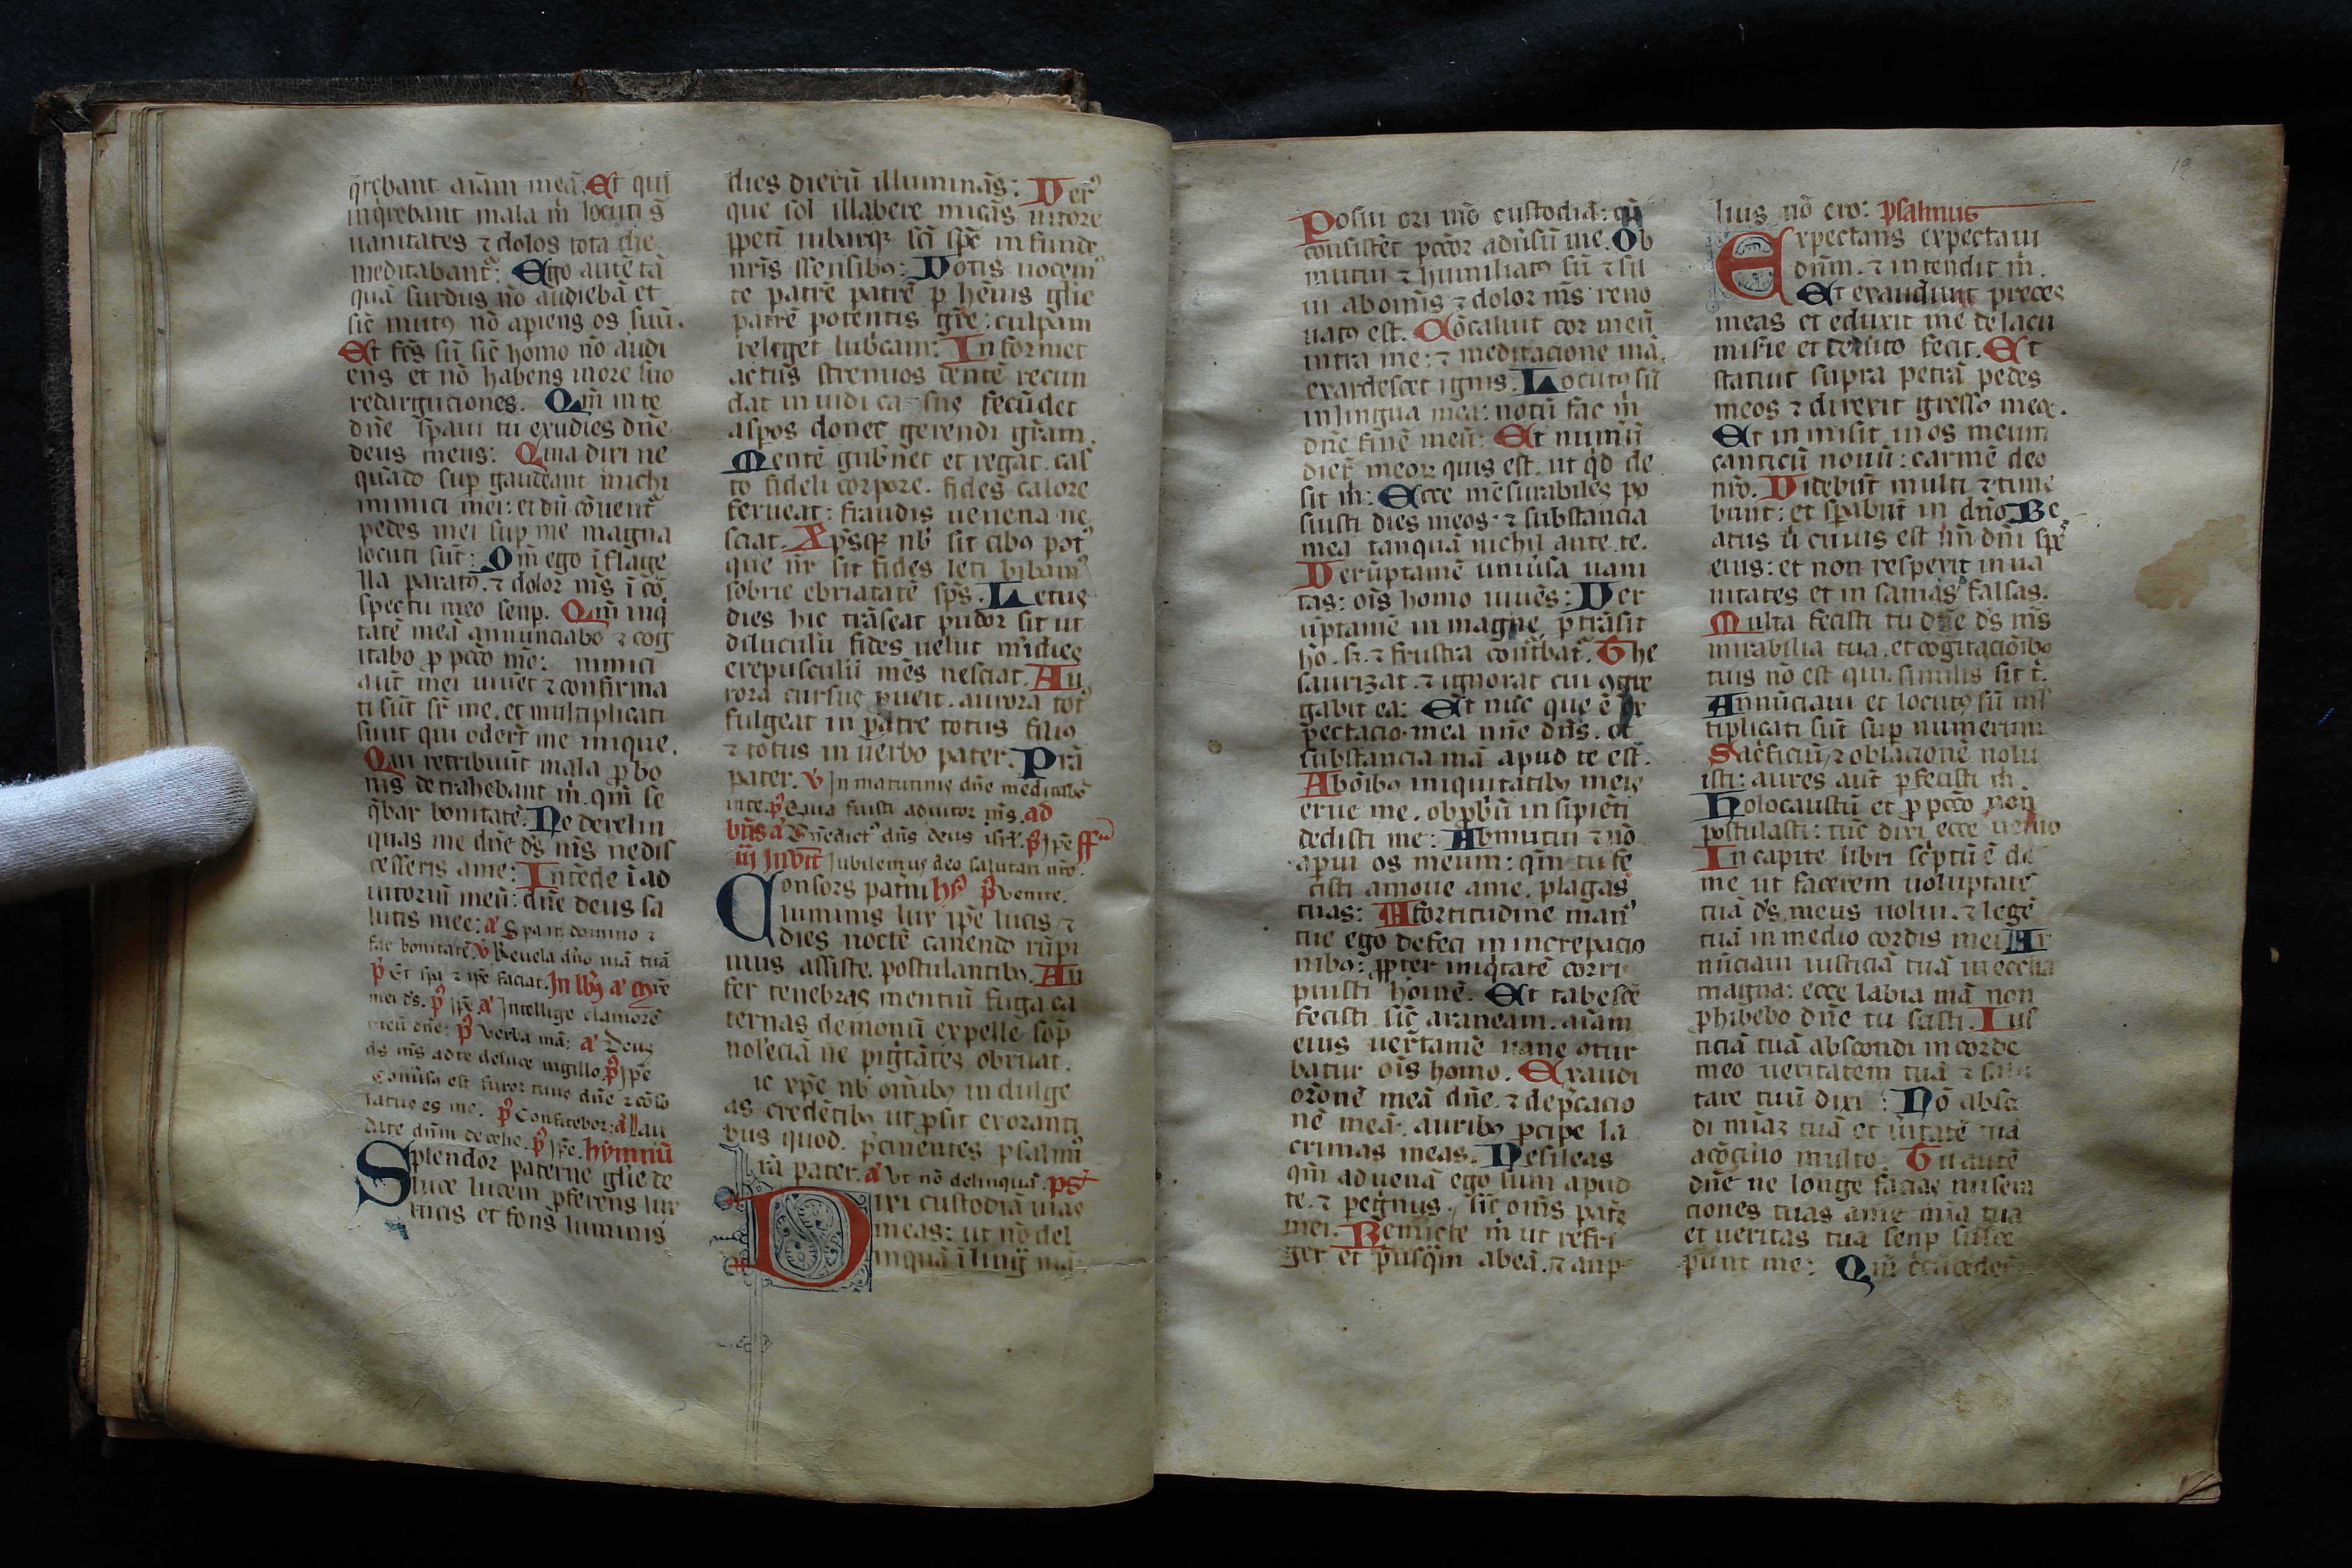 q̄rebant aīam meā. Et qui
inq̄rebant mala m̄ locuti s̄
uanitates ⁊ dolos tota die
meditabant᷑: Ego autē tā
quā surdus nō audiebā et
sic̄ mutꝰ nō apiens os suū.
Et fc̄s sū sic̄ homo nō audi
ens et nō habens in ore suo
redargutiones. Qm̄ in te
dn̄e sp̄aui tu exudies dn̄e
deus meus: Quia dixi ne
quādo sup̄ gaudeant michi
inimici mei: et dū cōuent᷑
pedes mei sup̄ me magna
locuti sūt: Qm̄ ego ī flage
lla paratꝰ. ⁊ dolor ms̄ ī cō
spectu meo senp̄. Qm̄ inq̄
tatē meā annunciabo ⁊ cog
itabo ꝓ pcc̄o mō: nimici
aut̄ mei uiuēt ⁊ confirma
ti sūt sr̄ me. et multiplicati
sunt qui oder̄t me inique.
Qui retribuūt mala ꝓ bo
nis detrahebant m̄. qm̄ se
q̄bar bonitatē. Ne derelin
quas me dn̄e ds̄ ms̄ ne dis
cesseris ame: Intēde ī ad
iutoriū meū: dn̄e deus sa
lutis mee: a᷑ Spa in domino ⁊
fac bonitatē. v᷑ Reuela dn̄o uiā tuā
p᷑ Et spa ⁊ ip̄e faciat. In lb᷑ꝫ a᷑ ꝯs̄e
mei ds̄. p᷑ ip̄e a᷑ Intellige clamorē
meū dn̄e: p᷑ Verba mā: a᷑ Deus
ds̄ ms̄ ad te de luce uigillo. p᷑ Ip̄e
Conūsꝰ est furor tuus dn̄e ⁊ cōso
latus es me. p᷑ Confitebor: a᷑ Lau
date dn̄m de celis. p᷑ ip̄e. hymnū
Splendor paterne glīe de
luce lucem p̄ferens lux
lucis et fons luminis
dies dierū illuminās: Ver᷑
que sol illabere micās nitore
ꝑpeti iubarqꝫ sc̄i sp̄e infunde
nr̄is s̄sensibꝫ: Votis uocemꝰ
te patrē patrē ꝑ hēnis glīe
patrē potentis gr̄e: culpam
releget lub̄cam: Informet
actus strenuos dentē recun
dat inuidi casus secūdet
aspos donet gerendi gr̄am.
Mentē gub̄net et regat. cas
to fideli corpore. fides calore
ferueat: fraudis uenena ne
sciat. Xp̄sqꝫ nb̄ sit cibꝰ pot᷑
que nr̄ sit fides leti bibamꝰ
sobrie ebriatatē sps̄. Letus
dies hic trāseat pudor sit ut
diluculū fides uelut m̄idies
crepusculū mēs nesciat. Au
rora cursus ꝓueit. aurora tot᷑
fulgeat in patre totus filiꝰ
⁊ totus in uerbo pater. Prā
pater. v᷑ In matutinis dn̄e meditabor
in te. p᷑ Quia fuisti adiutor ms̄. ad
bn̄s a᷑ Bn̄edict᷑ dn̄s deus isr̄l. p᷑ ip̄e ff᷑
iij Inuīt Iubilemus deo salutari nr̄o.
Consors patn̄i hy᷑ p᷑ Venite.
luminis lux ip̄e lucis ⁊
dies noctē canendo rūpi
mus assiste. postulantibꝰ. Au
fer tenebras mentiū fuga ca
ternas demonū expelle sōp
nolēciā ne pigritātes obruat.
ic xp̄e nb̄ om̄ibꝰ indulge
as credētibꝰ ut ꝓsit exoranti
bus quod. p̄cinentes psalmꝰ
rā pater. a᷑ Vt nō delinquā. ps᷑
Dixi custodiā uias
meas: ut nō del
inquā ī ling᷑ mā.
19
Posui ori mō custodiā: cū
consistēt pcc̄or adūsū me. Ob
mutui ⁊ humiliatꝰ sū ⁊ sil
ui abonis ⁊ dolor ms̄ reno
uatꝰ est. Cōcaluit cor meū
intra me: ⁊ meditacione mā.
exardescet ignis. Locutꝰ sū
in lingua mea: notū fac m̄
dn̄e finē meū: Et numū
dier̄ meoꝝ quis est. ut q̄d de
sit m̄: Ecce mēsurabiles po
suisti dies meos ⁊ substancia
mea tanquā nichil ante te.
Verūptamē uniūsa uani
tas: oīs homo uiuēs: Ver
ūptamē in magne ꝑtrāsit
hō. s̄. ⁊ frustra contʳbat᷑. The
saurizat. ⁊ ignorat cui ꝯgre
gabit ea: Et nūc que ē ex
pectacio mea nn̄e dn̄s. et
substancia mā apud te est.
Abōibꝰ iniquitatibꝰ meis
erue me. obꝓbū insipiēti
dedisti me: Abmutui ⁊ nō
apui os meum: qm̄ tu fe
cisti amoue ame. plagas
tuas: A fortitudine manꝰ
tue ego defeci in increpacio
nibꝰ: ꝓpter iniq̄tatē corri
puisti homē. Et tabescē
fecisti sic̄ araneam. aīam
eius uer̄tamē uane ꝯtur
batur oīs homo. Exaudi
orōnē meā dn̄e. ⁊ dep̄cacio
nē meā. auribꝰ ꝑcipe la
crimas meas. Ne sileas
qm̄ aduenā ego sum apud
te. ⁊ pegʳnus. sic̄ om̄s patʳ
mei. Remicte m̄ ut refri
ger et p̄usq̄m abeā. ⁊ anp
lius nō ero: psalmus
Expectans expectaui
dn̄m. ⁊ intendit m̄.
Et exaudiuit preces
meas et eduxit me de lacu
misīe et de luto fecit. Et
statuit supra petrā pedes
meos ⁊ direxit gresso meꝰ.
Et in misit in os meum
canticū nouū: carmē deo
nr̄o. Videbūt multi ⁊ time
bunt: et sp̄abūt in dn̄o. Be
atus u᷑ cuius est nn̄ dn̄i spē
eius: et non respexit in ua
nitates et in sanias falsas.
Multa fecisti tu dn̄e ds̄ ms̄
mirabilia tua. et cogitaciōibꝰ
tuis nō est qui similis sit t̄.
Annūciaui et locutꝰ sū ml̄
tiplicati sūt sup̄ numerum
Sacʳficiū ⁊ oblacionē nolu
isti: aures aut̄ ꝑfecisti m̄.
Holocaustū et ꝓ pcc̄o non
postulasti: tūc dixi ecce uenio
In capite libri scʳptū ē de
me ut facerem uoluptatē
tuā ds̄ meus uolui. ⁊ legē
tuā in medio cordis mei. An
nūciaui iusticiā tuā in ecclīa
magna: ecce labia mā non
ꝓhibebo dn̄e tu scisti. Ius
ticiā tuā abscondi in corde
meo ueritatem tuā ⁊ salu
tare tuū dixi: Nō absc̄
di mīaꝫ tuā et u᷑itatē tuā
acōcilio multo. Tu autē
dn̄e ne longe facias misera
ciones tuas ame mīa tua
et ueritas tua senp̄ susce
punt me: Qm̄ cʳcūdeder̄